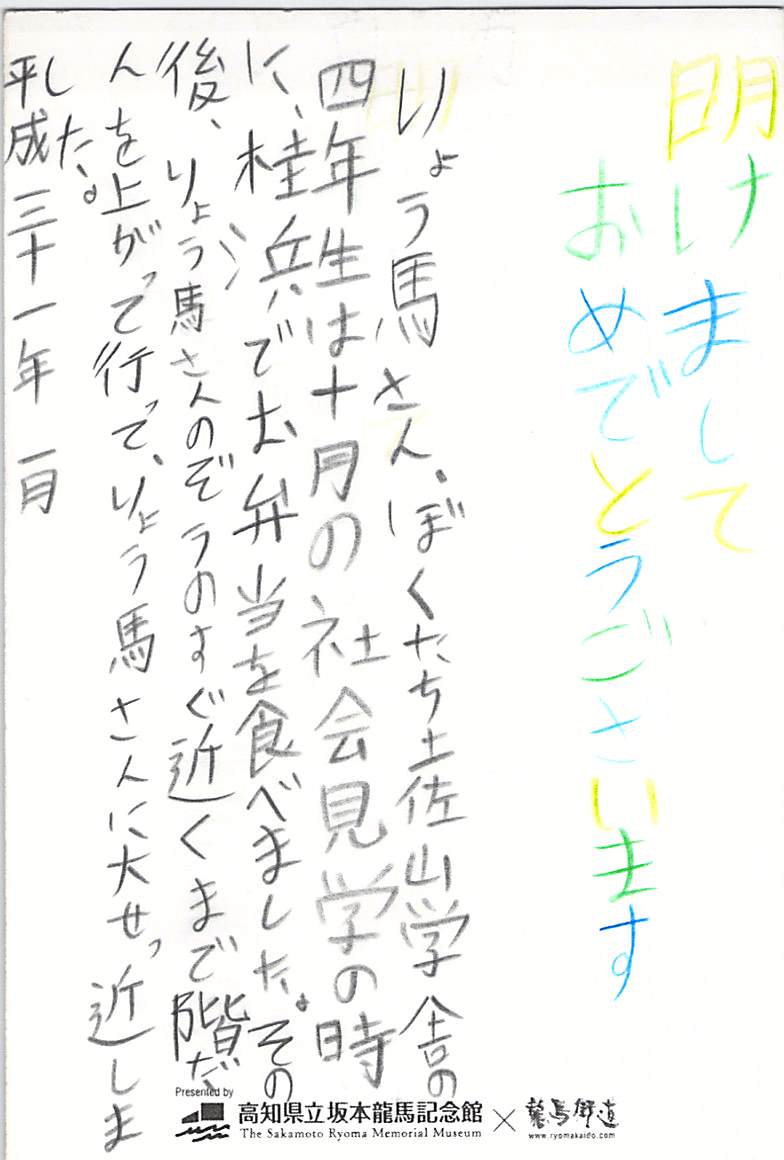 明けまして
おめでとうごさいます
りょう馬さん、ぼくたち土佐山学舎の
四年生は十月の社会見学の時
に、桂浜でお弁当を食べました。その
後、りょう馬さんのぞうのすぐ近くまで階だ
んを上がって行って、りょう馬さんに大せっ近しま
した。
平成三十一年 一月
Presented by
高知県立坂本龍馬記念館 × 龍馬街道
The Sakamoto Ryoma Memorial Museum
www.ryomakaido.com